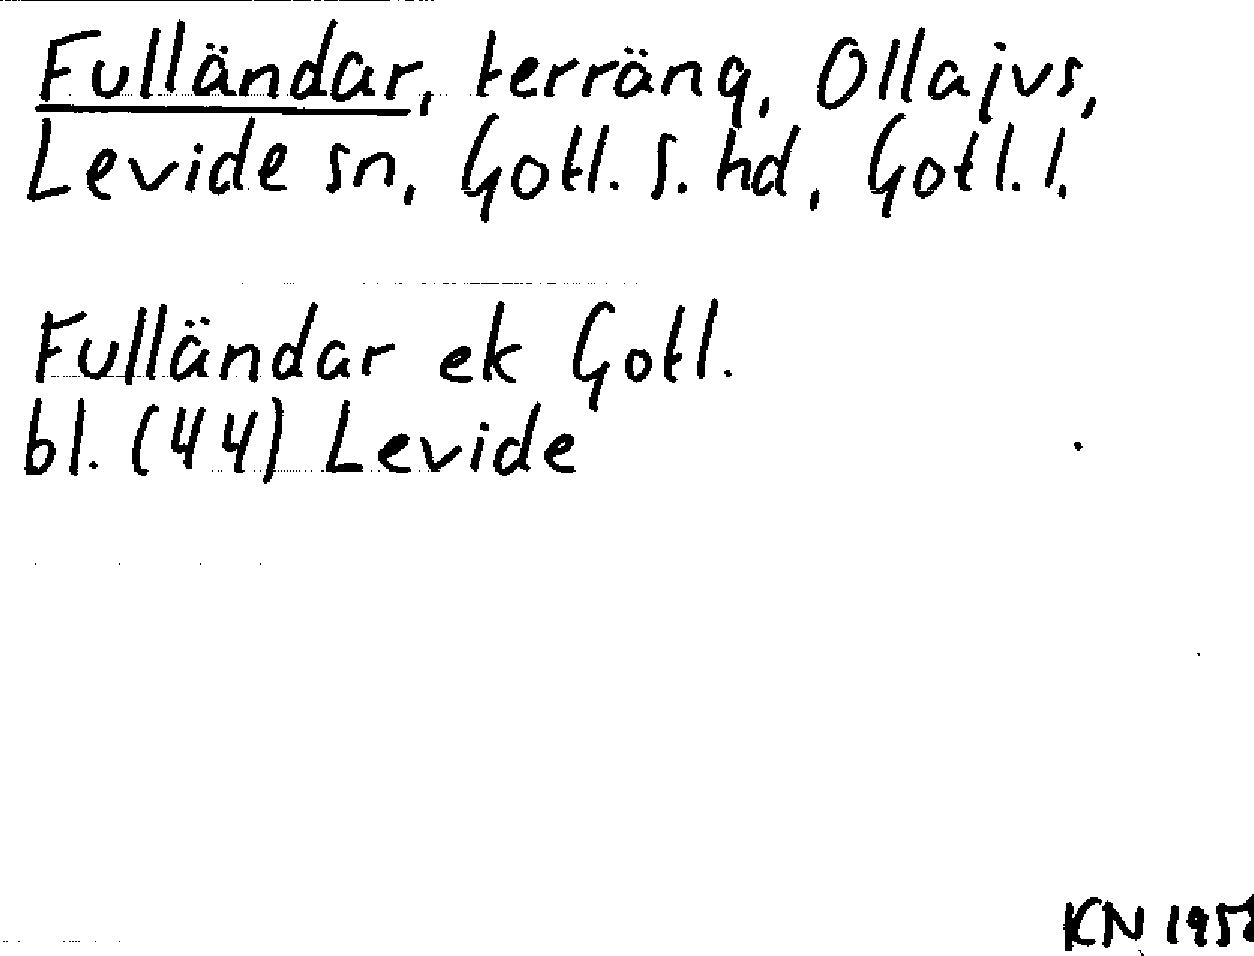 Fulländar, terräng, Ollajvs,
Levide sn, Gotl. S. hd, Gotl. l.
Fulländar ek Gotl.
bl. (44) Levide
KN